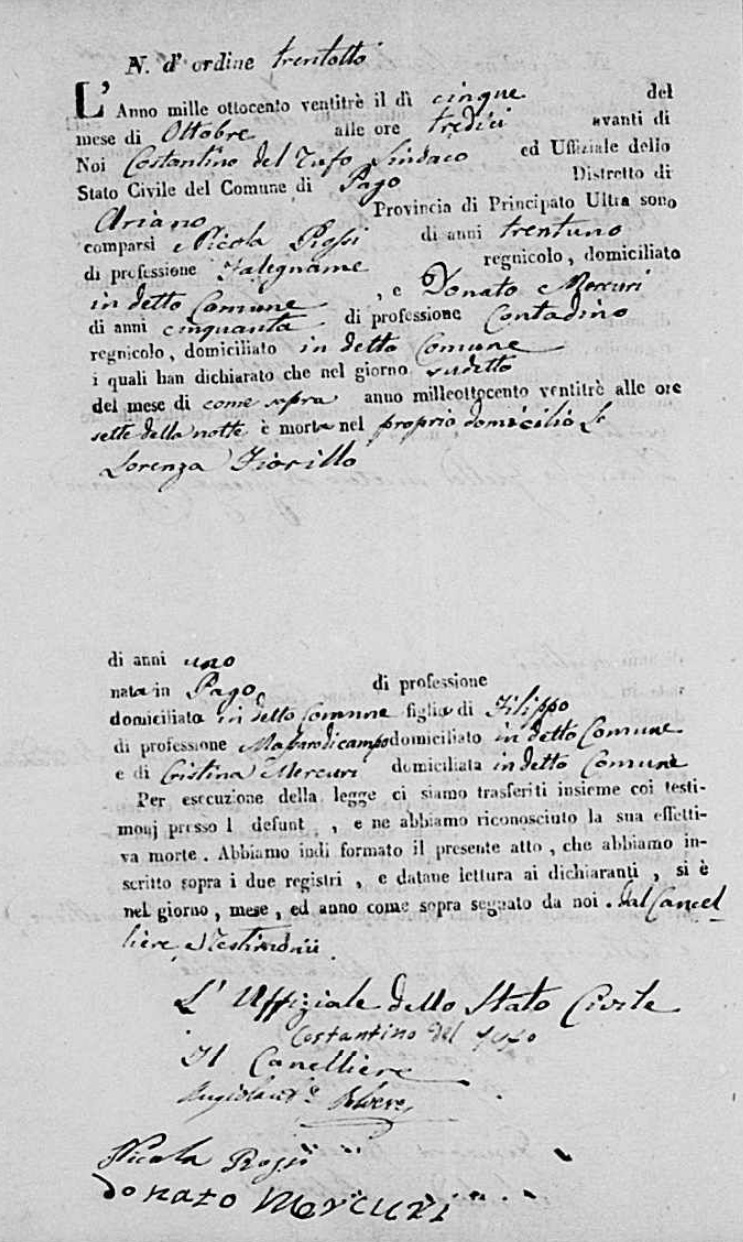 N. d' ordine trentotto
L' Anno mille ottocento ventitrè il dì cinque del
mese di Ottobre alle ore tredici avanti di
Noi Costantino del Tufo Sindaco ed Uffiziale dello
Stato Civile del Comune di Pago Distretto di
Ariano Provincia di Principato Ultra sono
comparsi Nicola Rossi di anni trentuno
di professione Falegname regnicolo, domiciliato
in detto Comune, e Donato Mercuri
di anni cinquanta di professione Contadino
regnicolo, domiciliato in detto Comune
i quali han dichiarato che nel giorno sudetto
del mese di come sopra anno milleottocento ventitrè alle ore
sette della notte è morta nel proprio domicilio
Lorenza Fiorillo
di anni uno
nata in Pago, di professione
domiciliata in detto Comune figlia di Filippo
di professione domiciliato in detto Comune
e di Cristina Mercuri domiciliata in detto Comune
Per esecuzione della legge ci siamo trasferiti insieme coi testi-
monj presso l defunt , e ne abbiamo riconosciuto la sua effetti-
va morte. Abbiamo indi formato il presente atto, che abbiamo in-
scritto sopra i due registri, e datane lettura ai dichiaranti, si è
nel giorno, mese, ed anno come sopra segnato da noi. dal Cancel
liere e Testimonii.
L' Uffiziale dello Stato Civile
Costantino del Tufo
Il Canelliere
Nicola Rossi
Donato Mercuri